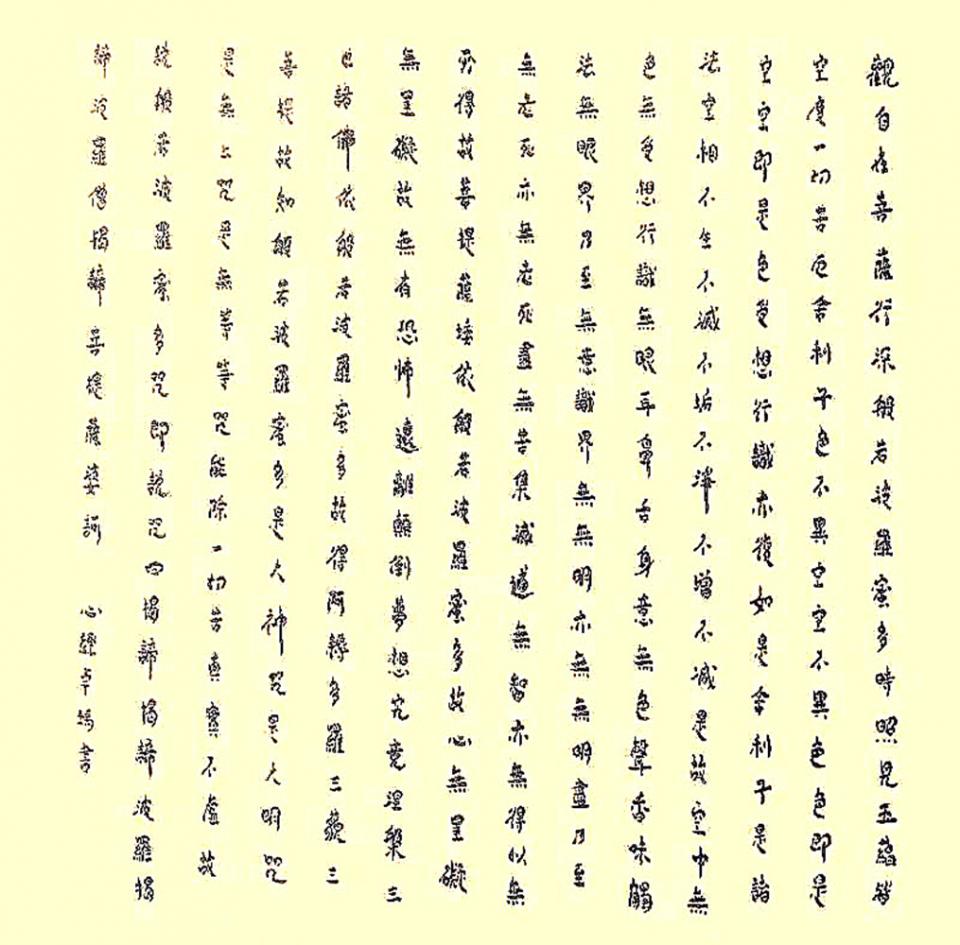 觀自在菩薩行深般若波羅蜜多時照見五蘊皆
空度一切苦厄舍利子色不異空空不異色色即是
空空即是色受想行識亦復如是舍利子是諸
法空相不生不滅不垢不淨不增不減是故空中無
色無受想行識無眼耳鼻舌身意無色聲香味觸
法無眼界乃至無意識界無無明亦無無明盡乃至
無老死亦無老死盡無苦集滅道無智亦無得以無
所得故菩提薩埵依般若波羅蜜多故心無罣礙
無罣礙故無有恐怖遠離顛倒夢想究竟涅槃三
世諸佛依般若波羅蜜多故得阿耨多羅三藐三
菩提故知般若波羅蜜多是大神咒是大明咒
是無上咒是無等等咒能除一切苦真實不虛故
說般若波羅蜜多咒即說咒曰揭諦揭諦波羅揭
諦波羅僧揭諦菩提薩婆訶 心經 書